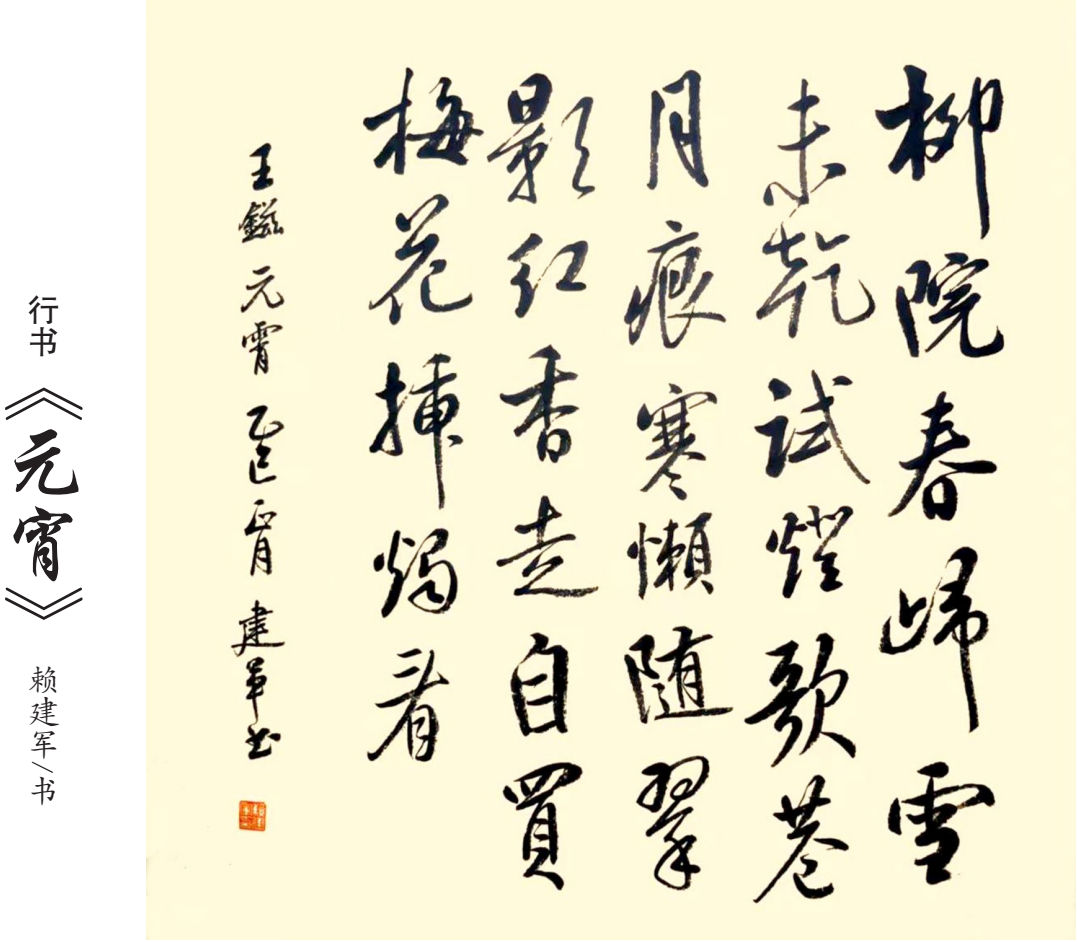 柳院春歸雪
未乾試燈歌巷
月痕寒懶随翠
影紅香走自買
梅花插燭看
王鎡元霄乙巳正月建軍书
行书
《元宵》
赖建军/书